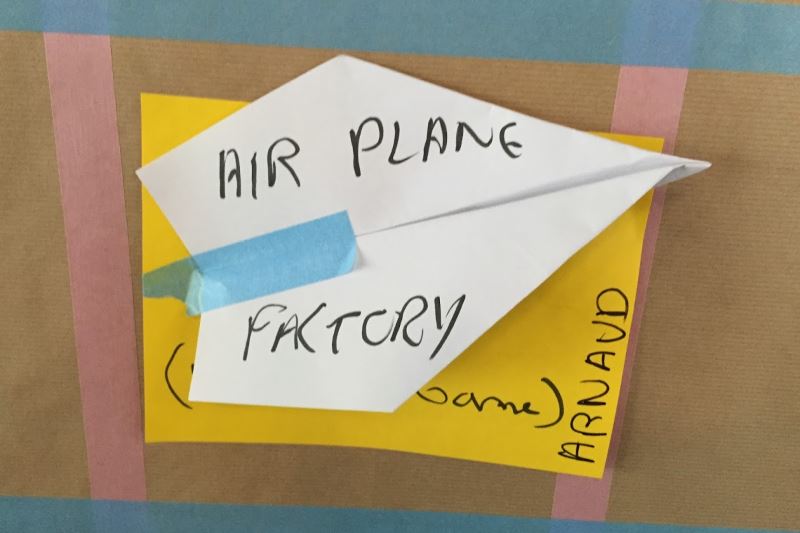 AIR PLANE
FACTORY
( Game)
ARNAUD